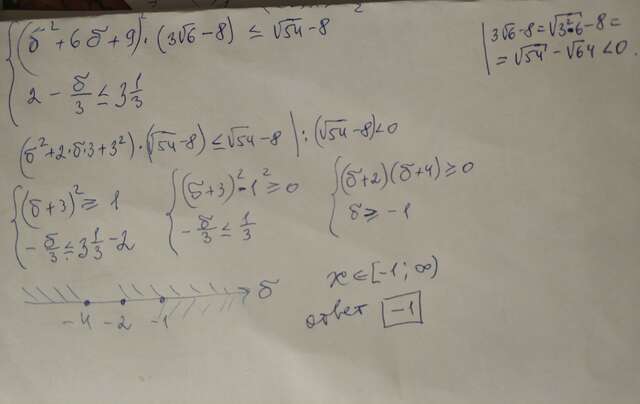 {(б² + 6б + 9)² · (3√6 − 8) ≤ √54 − 8
2 − б/3 ≤ 3 1/3
3√6 − 8 = √3²·6 − 8 =
= √54 − √64 < 0.
(б² + 2·б·3 + 3²) · (√54 − 8) ≤ √54 − 8 | : (√54 − 8) < 0
{(б+3)² ≥ 1
− б/3 ≤ 3 1/3 − 2
{(б+3)² − 1² ≥ 0
− б/3 ≤ 1/3
{(б+2)(б+4) ≥ 0
б ≥ −1
б
−4 −2 −1
x ∈ [−1; ∞)
ответ −1